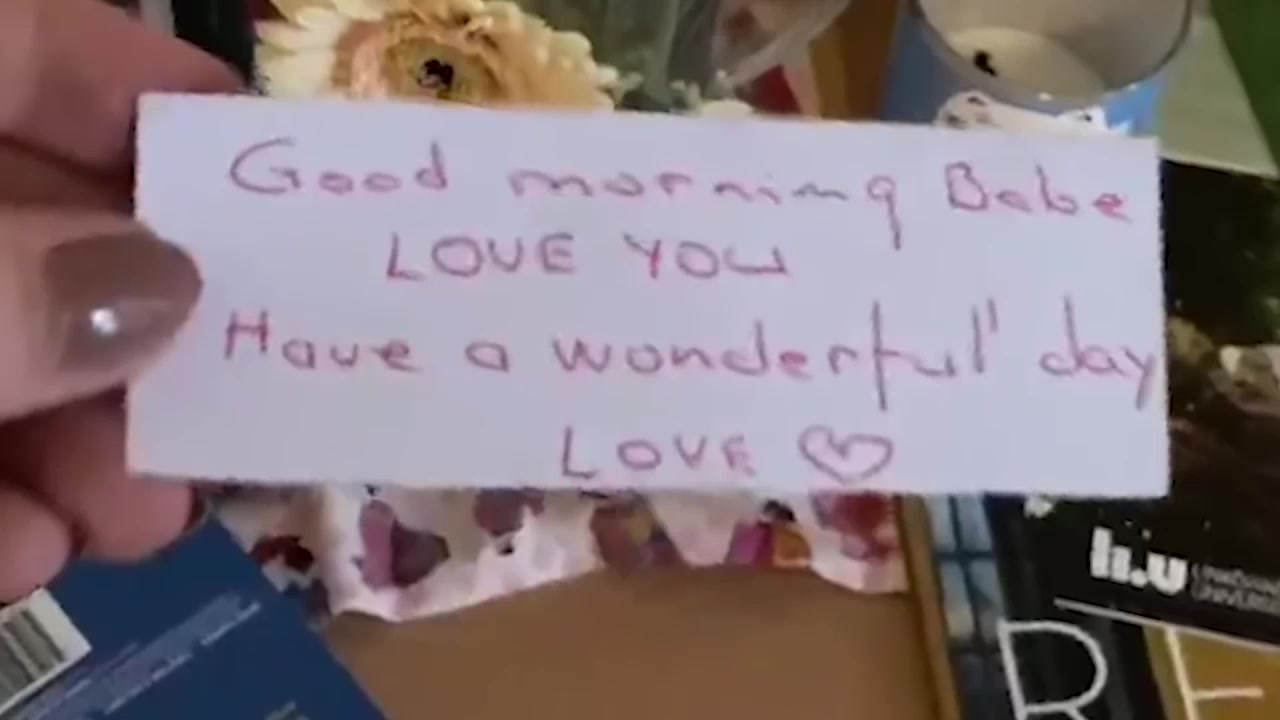 Good morning Babe
LOVE YOU
Have a wonderful day
LOVE ♡
li.u
UNIVERS
R F